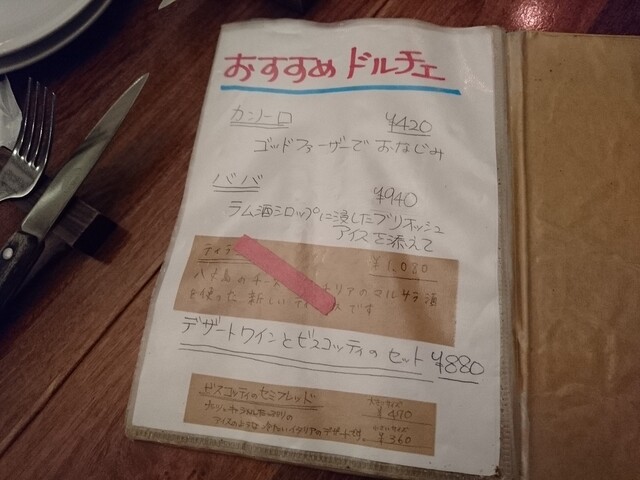 おすすめドルチェ
カンノーロ ¥420
ゴッドファーザーでおなじみ
ババ ¥940
ラム酒シロップに浸したブリオッシュ
アイスを添えて
ティ ¥1,080
八丈島のチーズ マルサラ酒
を使った新しい です
デザートワインとビスコッティのセット ¥880
ビスコッティのセミフレッド 大きいサイズ
¥470
アイスのような冷たいイタリアのデザートです。 小さいサイズ
¥360